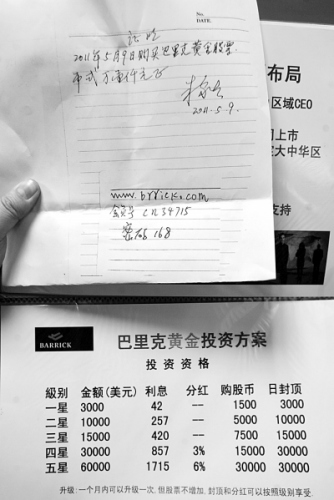 No.
DATE.
证明
2011年5月9日购买巴里克黄金股票
2011-5-9.
www.brrick.com
会员号 CN34715
密码 168
布局
区域CEO
上市
大中华区
支持
BARRICK
巴里克黄金投资方案
投资资格
级别 金额(美元) 利息 分红 购股币 日封顶
一星 3000 42 -- 1500 3000
二星 10000 257 -- 5000 10000
三星 15000 420 -- 7500 15000
四星 30000 857 3% 15000 30000
五星 60000 1715 6% 30000 30000
升级:一个月内可以升级一次,但股票不增加,封顶和分红可以按照级别享受